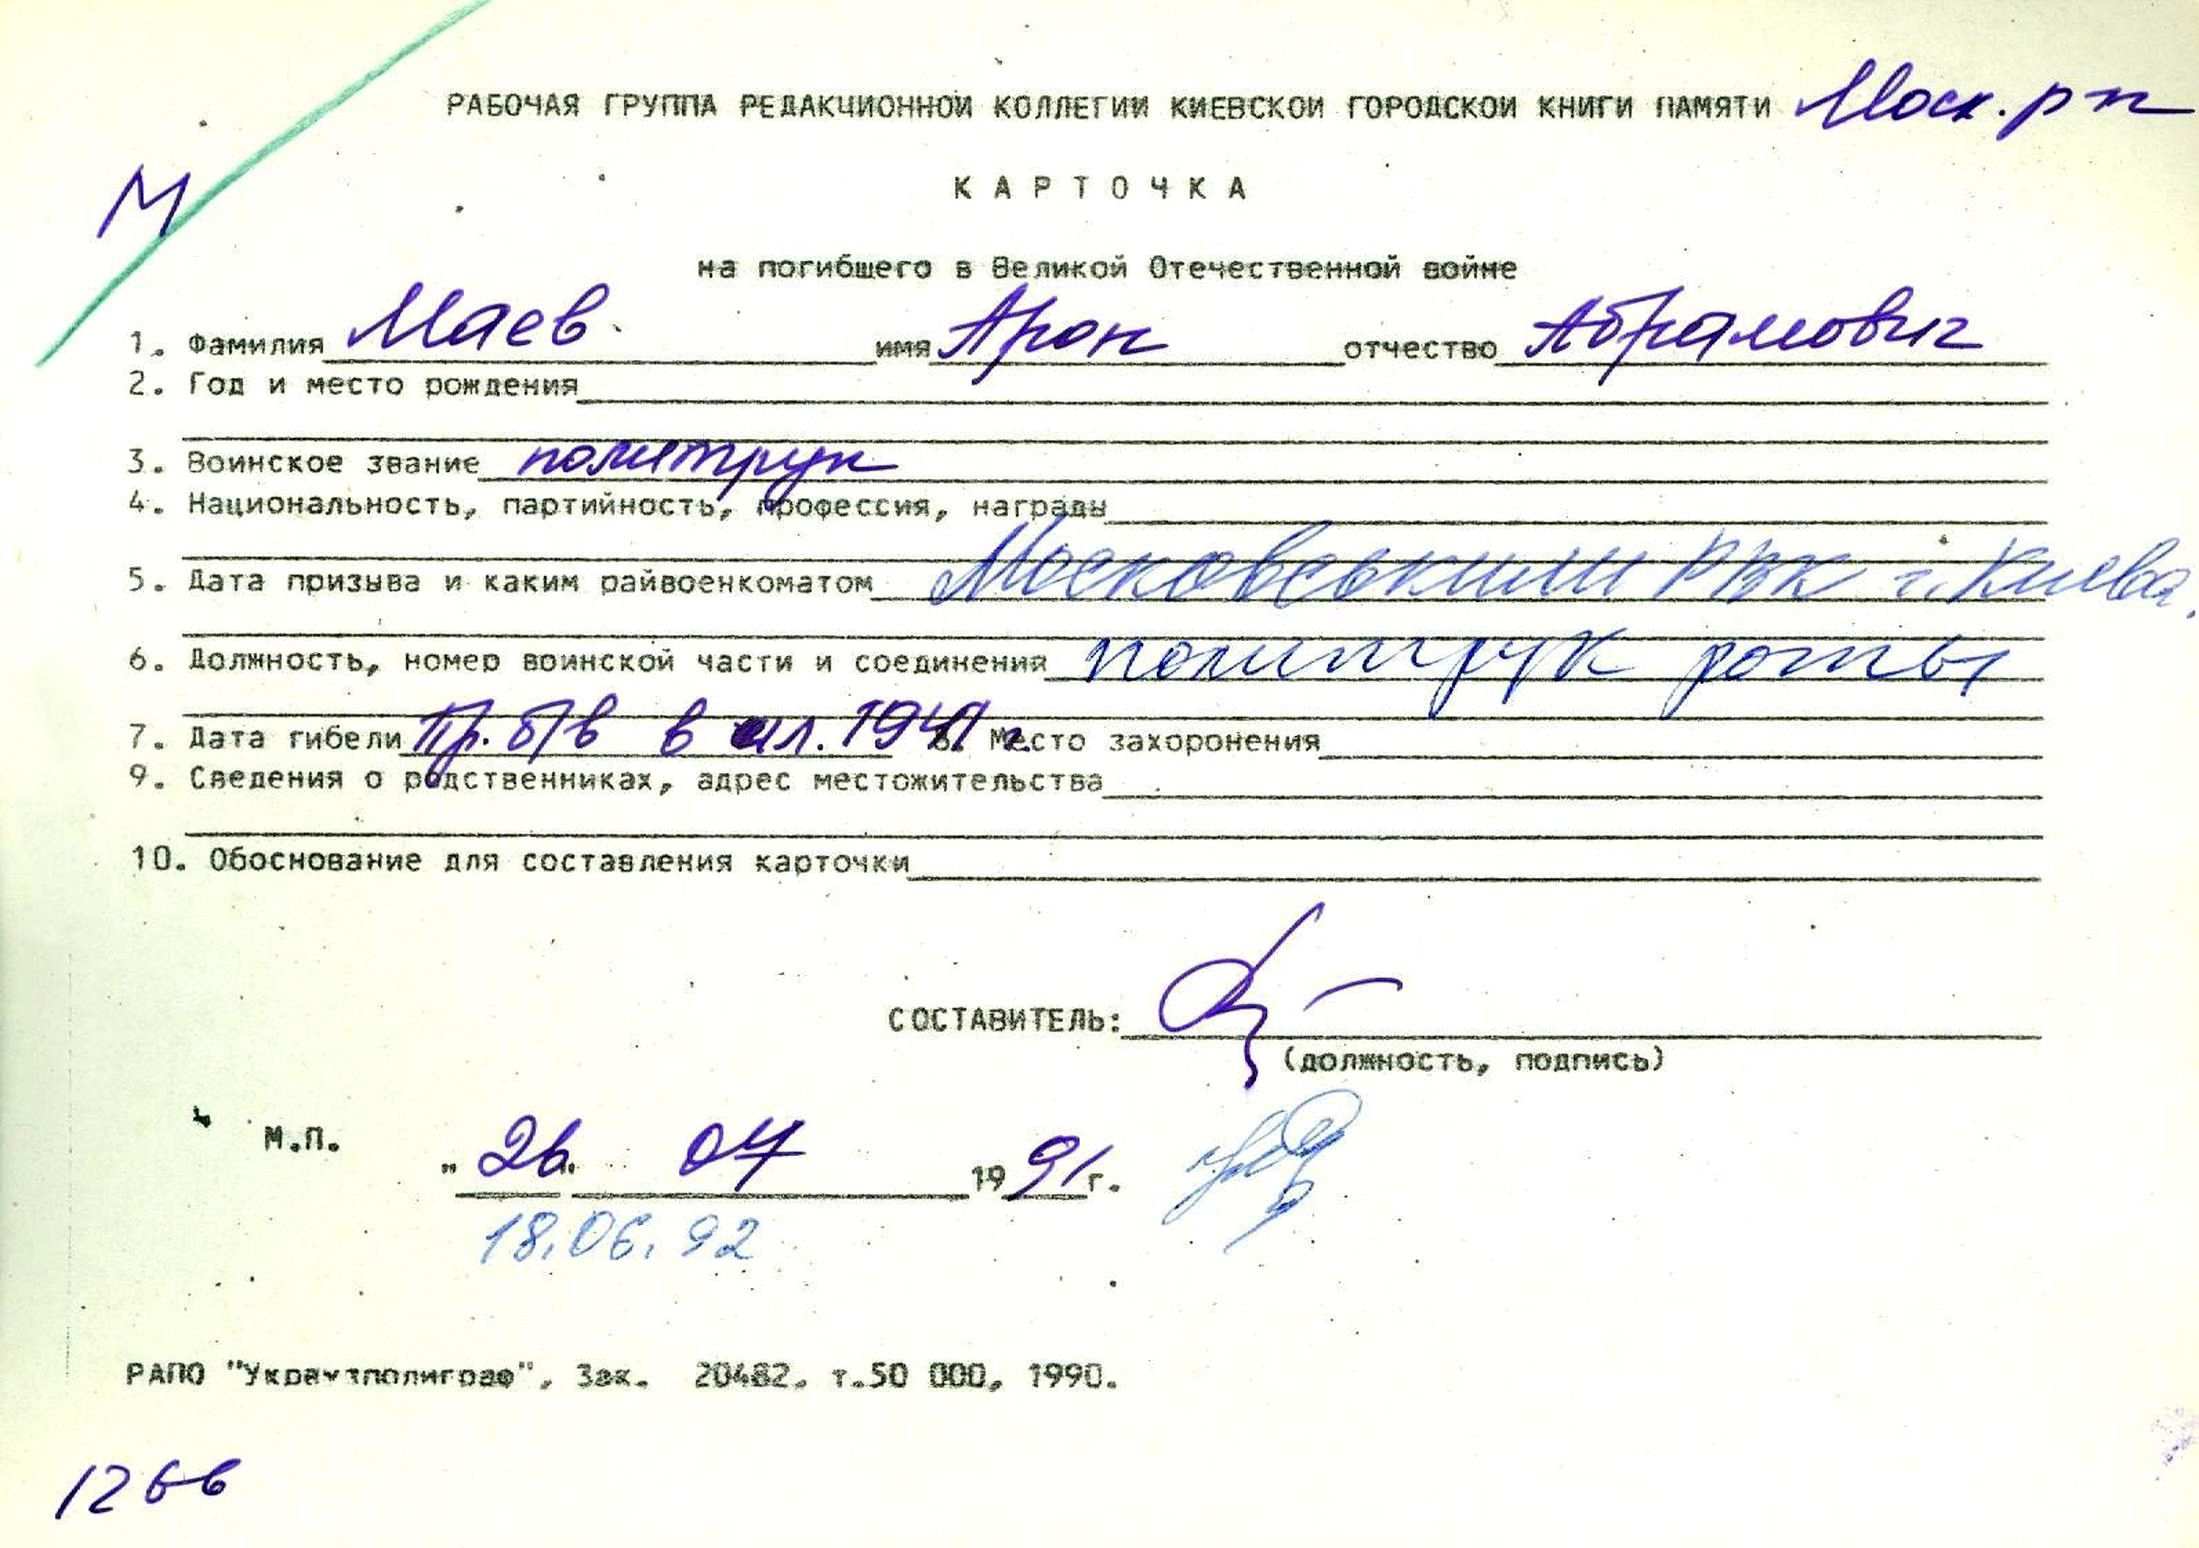 РАБОЧАЯ ГРУППА РЕДАКЦИОННОЙ КОЛЛЕГИИ КИЕВСКОЙ ГОРОДСКОЙ КНИГИ ПАМЯТИ Моск. р-н
М
К А Р Т О Ч К А
на погибшего в Великой Отечественной войне
1. Фамилия Маев имя Арон отчество Абрамович
2. Год и место рождения
3. Воинское звание политрук
4. Национальность, партийность, профессия, награды
5. Дата призыва и каким райвоенкоматом Московським РВК г. Киева.
6. Должность, номер воинской части и соединения политрук роты
7. Дата гибели Пр. б/в в 1941 г. 8. Место захоронения
9. Сведения о родственниках, адрес местожительства
10. Обоснование для составления карточки
СОСТАВИТЕЛЬ:
(должность, подпись)
М.П.
"26" 07 1991г.
18.06.92
РАПО "Укрвузполиграф", Зак. 20482, т.50 000, 1990.